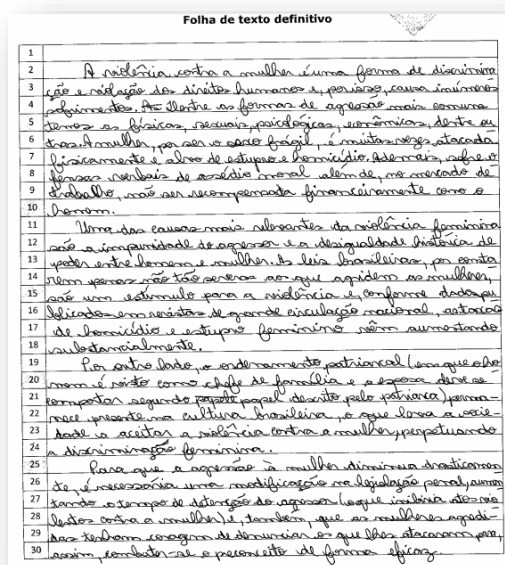 Folha de texto definitivo
1
2 A violência contra a mulher é uma forma de discrimina
3 ção e violação dos direitos humanos e, por isso, causa inúmeros
4 sofrimentos. Dentre as formas de agressão mais comuns
5 temos as físicas, sexuais, psicológicas, econômicas, dentre ou
6 tras. A mulher, por ser o sexo frágil, é muitas vezes atacada
7 fisicamente e alvo de estupros e homicídio. Ademais, sofre o
8 fensas verbais de assédio moral além de, no mercado de
9 trabalho, não ser recompensada financeiramente como o
10 homem.
11 Uma das causas mais relevantes da violência feminina
12 são a impunidade do agressor e a desigualdade histórica de
13 poder entre homem e mulher. As leis brasileiras, por conte
14 rem penas não tão severas aos que agridem as mulheres,
15 são um estímulo para a violência e, conforme dados pu
16 blicados em revistas de grande circulação nacional, as taxas
17 de homicídio e estupro feminino vêm aumentando
18 substancialmente.
19 Por outro lado, o ordenamento patriarcal (em que o ho
20 mem é visto como chefe de família e a esposa deve se
21 comportar segundo papel descrito pelo patriarca) perma-
22 nece presente na cultura brasileira, o que leva a socie-
23 dade a aceitar a violência contra a mulher, perpetuando
24 a discriminação feminina.
25 Para que a agressão à mulher diminua drasticamen
26 te, é necessária uma modificação na legislação penal, aumen
27 tando o tempo de detenção do agressor (o que inibiria atos vio
28 lentos contra a mulher) e, também, que as mulheres agredi-
29 das tenham coragem de denunciar os que lhes atacaram para,
30 assim, combater-se o preconceito de forma eficaz.